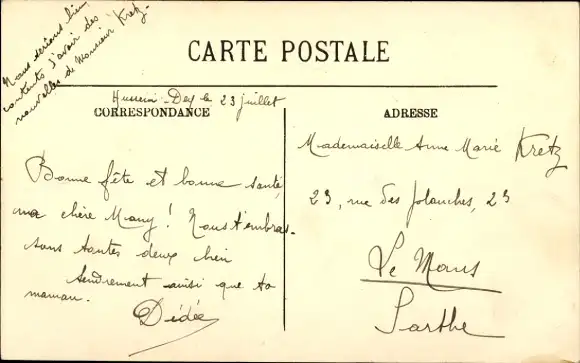 Nous serions bien
contents d'avoir des
nouvelles de Monsieur Kretz.
CARTE POSTALE
Hussein-Dey le 23 juillet
CORRESPONDANCE
ADRESSE
Bonne fête et bonne santé,
ma chère Many! Nous t'embras-
sons toutes deux bien
tendrement ainsi que ta
maman.
Dédée
Mademoiselle Anne Marie Kretz
23, rue des 23
Le Mans
Sarthe